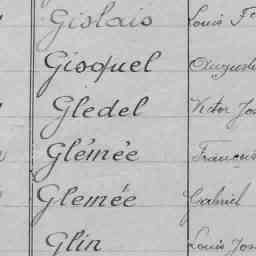 Gislais Louis F
Gisquel Auguste
Gledel Victor Jos
Glémée François
Glemée Gabriel
Glin Louis Jos